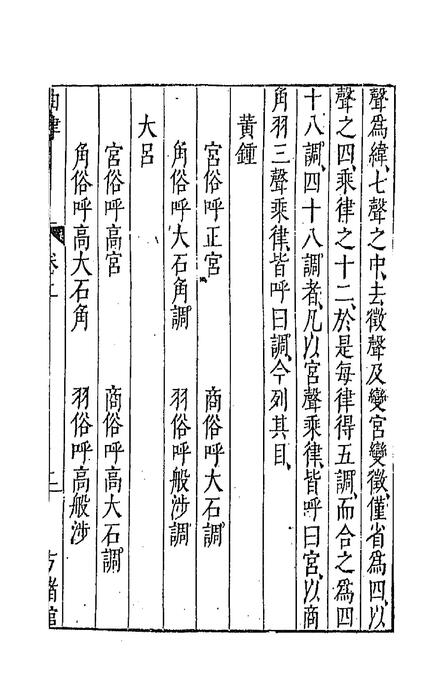 聲爲緯、七聲之中、去徵聲及變宮變徵、僅省爲四、以
聲之四、乘律之十二、於是每律得五調、而合之爲四
十八調、四十八調者、凡以宮聲乘律、皆呼曰宮、以商
角羽三聲乘律、皆呼曰調、今列其目、
黃鍾
宮俗呼正宮 商俗呼大石調
角俗呼大石角調 羽俗呼般涉調
大呂
宮俗呼高宮 商俗呼高大石調
角俗呼高大石角 羽俗呼高般涉
曲律 卷二 二 方諸館